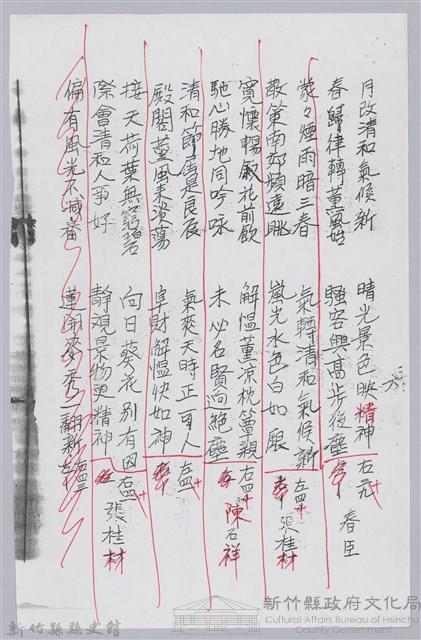 月改清和氣候新　晴光景色映精神　右元
春歸律轉薰風　騷客興高步後塵　春臣
濛々煙雨暗三春　氣轉清和氣候新　左四
散策南郊頻遠眺　嵐光水色白如銀　張桂材
寬懷暢敘花前飲　解慍薰涼枕簟親　右四
馳心勝地同吟咏　未必名賢迥絕塵　陳石祥
清和節屆是良辰　氣爽天時正可人　左四
殿閣薰風來淡蕩　阜財解慍快如神
接天荷葉無窮碧　向日葵花別有因　右四
際會清和人事好　靜觀景物更精神　張桂材
偏有風光不減春　蓮開麥秀一翻新　左四
新竹縣縣史館
新竹縣政府文化局
Cultural Affairs Bureau of Hsinchu
County Government